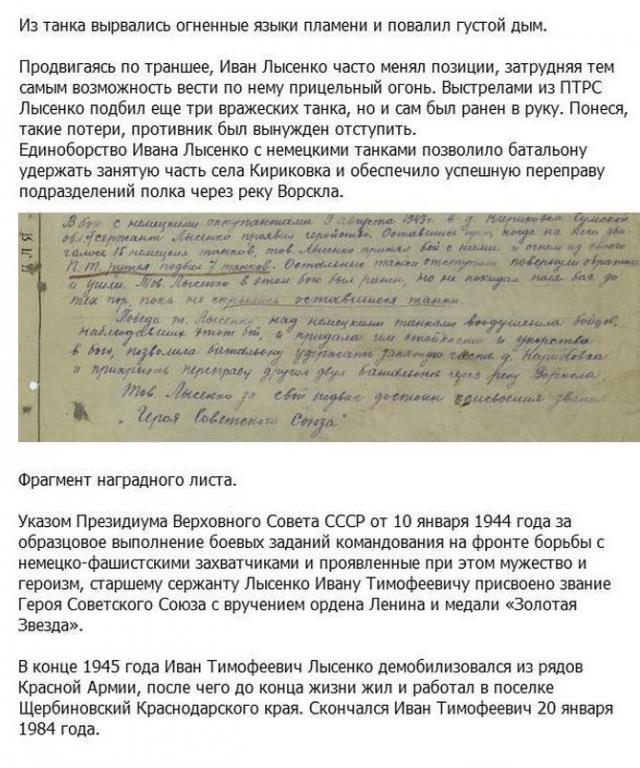 Из танка вырвались огненные языки пламени и повалил густой дым.
Продвигаясь по траншее, Иван Лысенко часто менял позиции, затрудняя тем
самым возможность вести по нему прицельный огонь. Выстрелами из ПТРС
Лысенко подбил еще три вражеских танка, но и сам был ранен в руку. Понеся,
такие потери, противник был вынужден отступить.
Единоборство Ивана Лысенко с немецкими танками позволило батальону
удержать занятую часть села Кириковка и обеспечило успешную переправу
подразделений полка через реку Ворскла.
ЦИЯ
В бою с немецкими оккупантами 9 августа 1943г. в д. Кириковка Сумской
обл. сержант Лысенко проявил геройство. Оставшись когда на него дви-
галось 15 немецких танков, тов. Лысенко принял бой с ними и огнем из своего
П.Т. ружья подбил 7 танков. Остальные танки отступили повернули обратно
и ушли. Тов. Лысенко в этом бою был ранен, но не покидал поля боя до
тех пор, пока не скрылись оставшиеся танки.
Победа т. Лысенко над немецкими танками воодушевила бойцов,
наблюдавших этот бой, и придала им стойкости и упорства
в бою, позволила батальону удержать занятую часть д. Кириковка
и прикрыть переправу других двух батальонов через реку Ворскла.
Тов. Лысенко за свой подвиг достоин присвоения звания
„Героя Советского Союза"
Фрагмент наградного листа.
Указом Президиума Верховного Совета СССР от 10 января 1944 года за
образцовое выполнение боевых заданий командования на фронте борьбы с
немецко-фашистскими захватчиками и проявленные при этом мужество и
героизм, старшему сержанту Лысенко Ивану Тимофеевичу присвоено звание
Героя Советского Союза с вручением ордена Ленина и медали «Золотая
Звезда».
В конце 1945 года Иван Тимофеевич Лысенко демобилизовался из рядов
Красной Армии, после чего до конца жизни жил и работал в поселке
Щербиновский Краснодарского края. Скончался Иван Тимофеевич 20 января
1984 года.